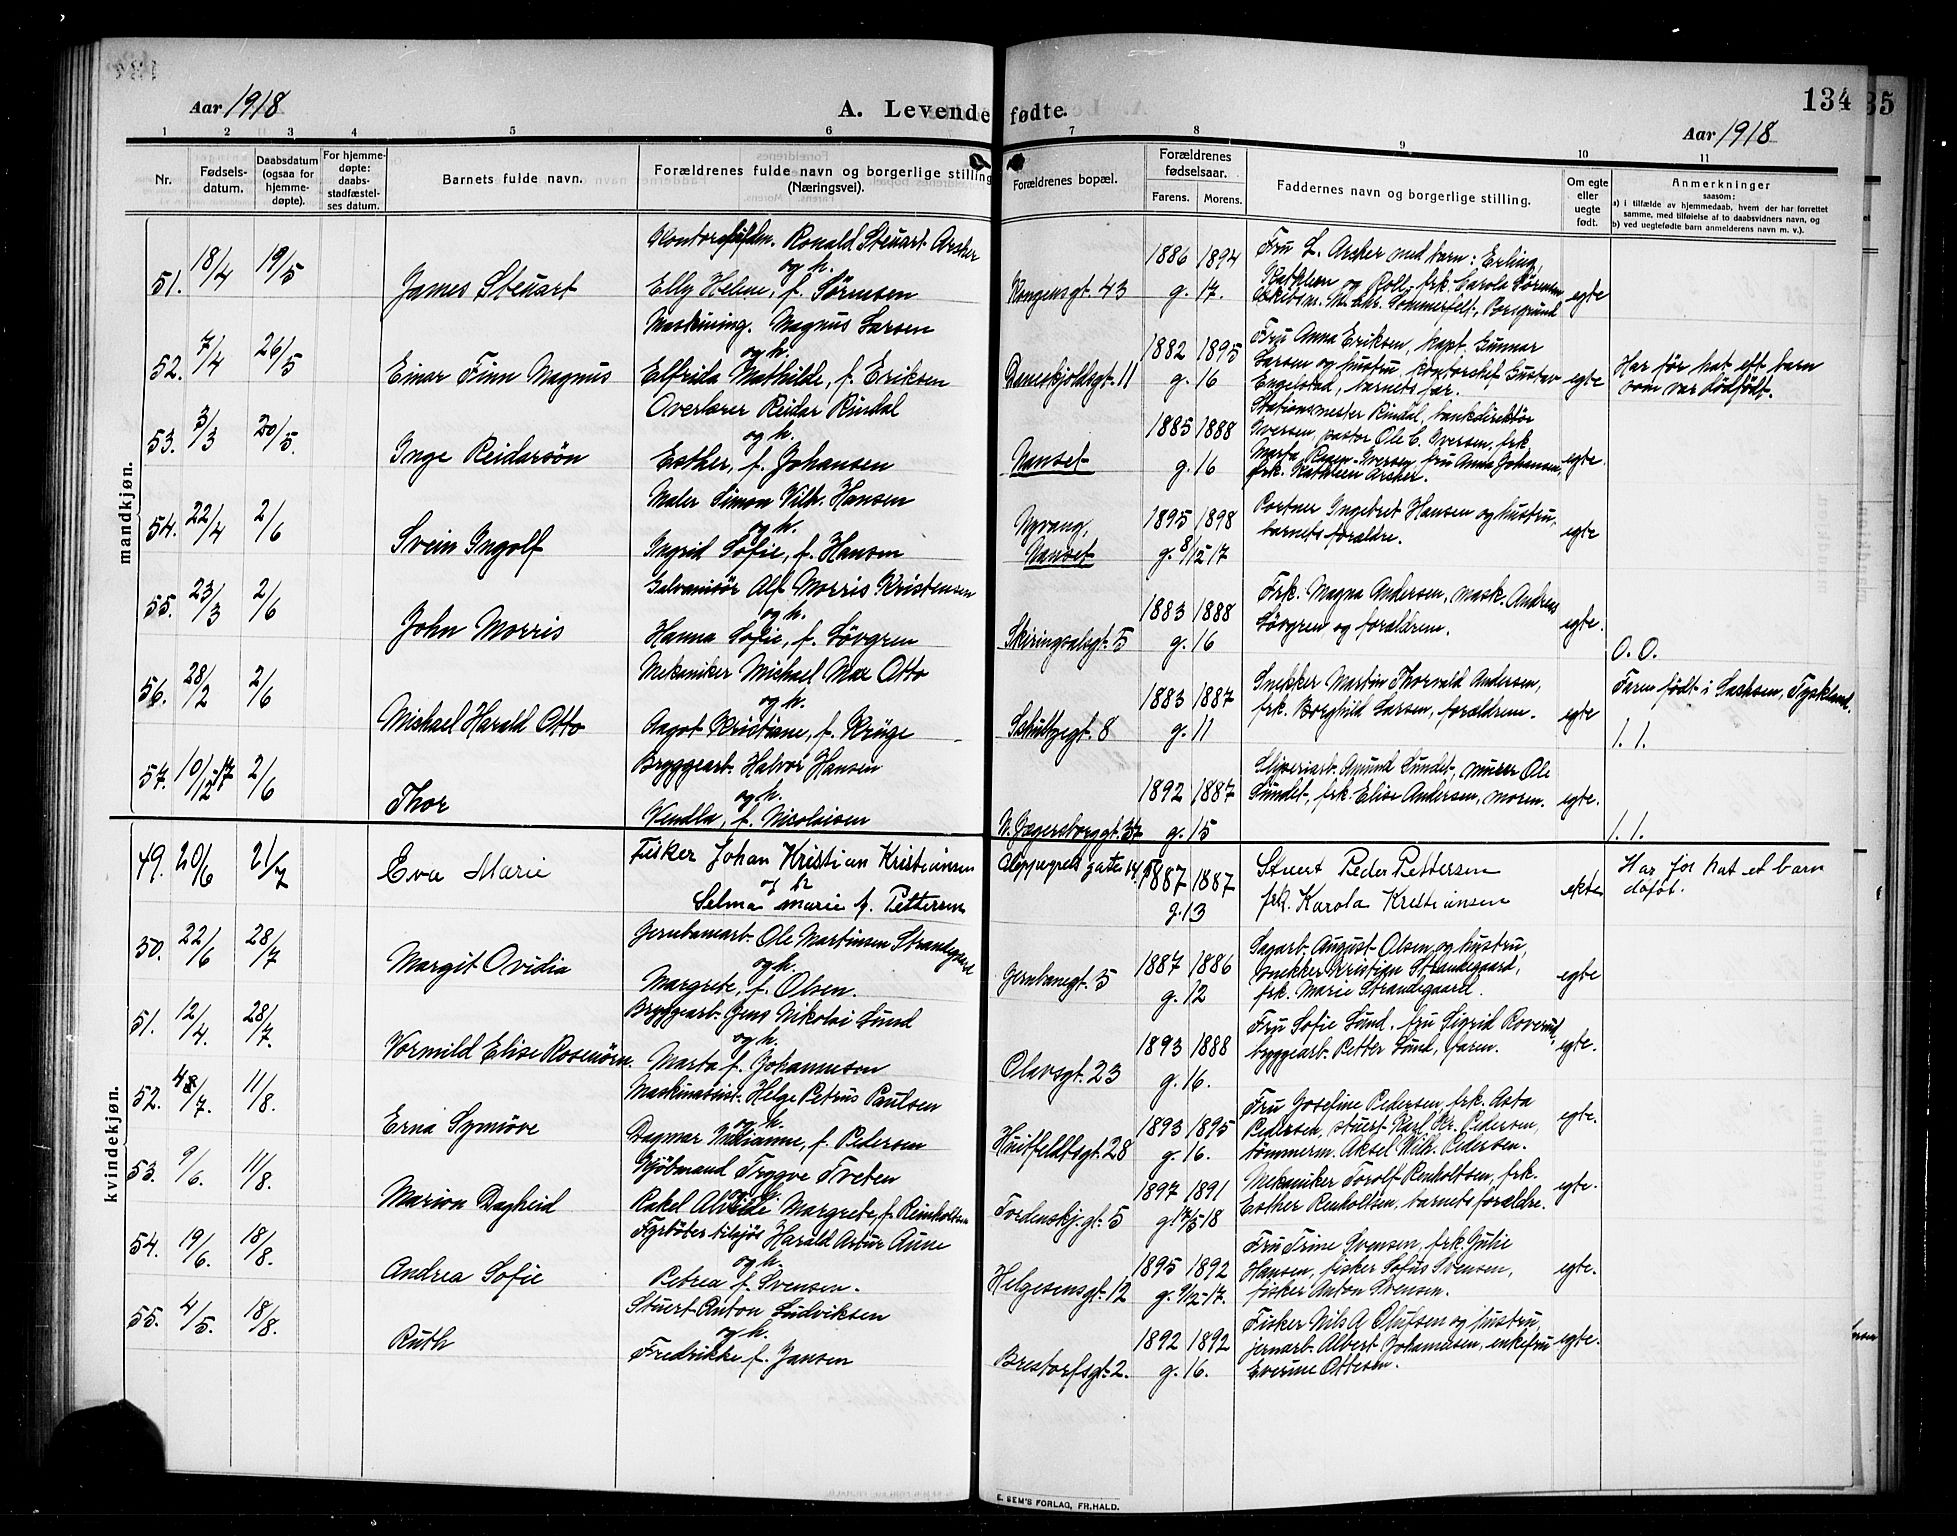 Aar 1918
A. Levende fødte.
134
35
Aar 1918
1 2 3 4 5 6 7 8 9 10 11
Nr.
Fødsels-
datum.
Daabsdatum
(ogsaa for
hjemme-
døpte).
For hjemme-
døpte:
daabs-
stadfæstel-
ses datum.
Barnets fulde navn.
Forældrenes fulde navn og borgerlige stilling
(Næringsvei).
Forældrenes bopæl.
Forældrenes
fødselsaar.
Farens. Morens.
Faddernes navn og borgerlige stilling.
Om egte
eller
uegte
født.
Anmerkninger
saasom:
a) i tilfælde av hjemmedaab, hvem der har forrettet
samme, med tilføielse af to daabsvidners navn, og
b) ved uegtefødte barn anmelderens navn m. v.).
mandkjøn.
51. 18/4 19/5 James Steuart
Ronald Steuart Archer
og h.
Elly Helene, f. Sørensen
Kongensgt. 43
1886 1894
g. 17.
Fru L. Archer med barn: Erling,
Kathleen og Roll, frk. Carola Sørensen
Skibsm. M. Chr. Sommerfelt, Porsgrund
egte
52. 7/4 26/5 Einar Finn Magnus
Maskining. Magnus Larsen
og h.
Elfrida Mathilde, f. Eriksen
Daneskjoldsgt. 11
1882 1895
g. 16
Fru Anna Eriksen, kapt. Gunnar
Larsen og hustru, kontorchef Gustav
Engelstad, barnets far.
egte
Har før hat ett barn
som var dødfødt.
53. 3/3 20/5. Inge Reidarsøn
Overlærer Reidar Rindal
og h.
Esther, f. Johansen
Nanset
1885 1888
g. 16
Stationsmester Rindal, bankdirektør
Iversen, pastor Ole C. Iversen, frk.
Marta Iversen, fru Anna Johansen,
frk. Kathleen Archer.
egte.
54. 22/4 2/6 Svein Ingolf
Maler Simon Vilh. Hansen
og h.
Ingrid Sofie, f. Hansen
Nyvang,
Nanset
1895 1898
g. 8/12-17
Portner Ingebret Hansen og hustru,
barnets forældre.
egte
55. 23/3 2/6 John Morris
Galvanisør Alf Morris Kristensen
og h.
Hanna Sofie, f. Løvgren
Skiringsalsgt. 5
1883 1888
g. 16
Frk. Magna Andersen, mask. Andreas
Løvgren og forældrene.
egte.
0. 0.
56. 28/2 2/6 Michael Harald Otto
Mekaniker Michael Max Otto
og h.
Aagot Kristiane, f. Krüge
Schultzegt. 8
1883 1887
g. 11
Snekker Martin Thorvald Andersen,
frk. Borghild Larsen, forældrene.
egte
Faren født i Sachsen, Tyskland.
1. 1.
57. 10/12-17 2/6 Thor
Bryggearb. Halvor Hansen
og h.
Vendla, f. Nicolaisen
N. Jegersborggt. 37
1892 1887
g. 15
Sliperiarb. Amund Sundet, murer Ole
Sundet, frk. Elise Andersen, moren.
egte.
1. 1.
kvindekjøn.
49. 20/6 21/7 Eva Marie
Fisker Johan Kristian Kristiansen
og h
Selma Marie f. Pettersen
1887 1887
g. 13
Stuert Peder Pettersen
frk. Karola Kristiansen
ekte
Har før hat et barn
døføt.
50. 22/6 28/7 Margit Ovidia
Jernbanearb. Ole Martinsen Strandegaard
og h.
Margrete, f. Olsen.
Jernbanegt. 5
1887 1886
g. 12
Sagarb. August Olsen og hustru,
snekker Kristian Strandegaard,
frk. Marie Strandegaard.
egte
51. 12/4. 28/7. Vormild Elise Rosenörn.
Bryggearb. Jens Nikolai Lund
og h.
Marta f. Johannesen
Olavsgt. 23
1893 1888
g. 16.
Fru Sofie Lund, fru Sigrid Roverud,
byggearb. Petter Lund, faren.
egte.
52. 4/7. 11/8. Erna Synnöve
Maskinassist. Helge Petrus Paulsen
og h.
Dagmar Julianne, f. Pedersen
Huitfeldtsgt. 28
1893 1895
g. 16.
Fru Josefine Pedersen, frk. Asta
Pedersen, stuert Karl Kr. Pedersen,
tömmerm. Aksel Wilh. Pedersen.
egte.
53. 9/6. 11/8. Marion Dagheid
Sjöbmand Trygve Tveten
og h.
Rakel Alvilde Margrete, f. Reinholtsen
Tordenskj.gt. 5
1897 1891
g. 17/5-18
Mekaniker Torolf Renholtsen, frk.
Esther Renholtsen, barnets forældre.
egte.
54. 19/6. 18/8. Andrea Sofie
Fyrböter tilsjös Harald Artur Aune
og h.
Petrea f. Svensen.
Helgesensgt. 12
1895 1892
g. 9/12-17.
Fru Trine Svensen, frk. Julie
Hansen, fisker Sofus Svensen,
fisker Anton Svensen.
egte.
55. 4/5. 18/8. Ruth
Stuert Anton Ludviksen
og h.
Fredrikke f. Jansen
Brestorfsgt. 2.
1892 1892
g. 16.
Fisker Nils A. Olufsen og hustru,
jernarb. Albert Johannesen, enkefru
Everine Ottesen.
egte.
E. SEM'S FORLAG, FR.HALD.